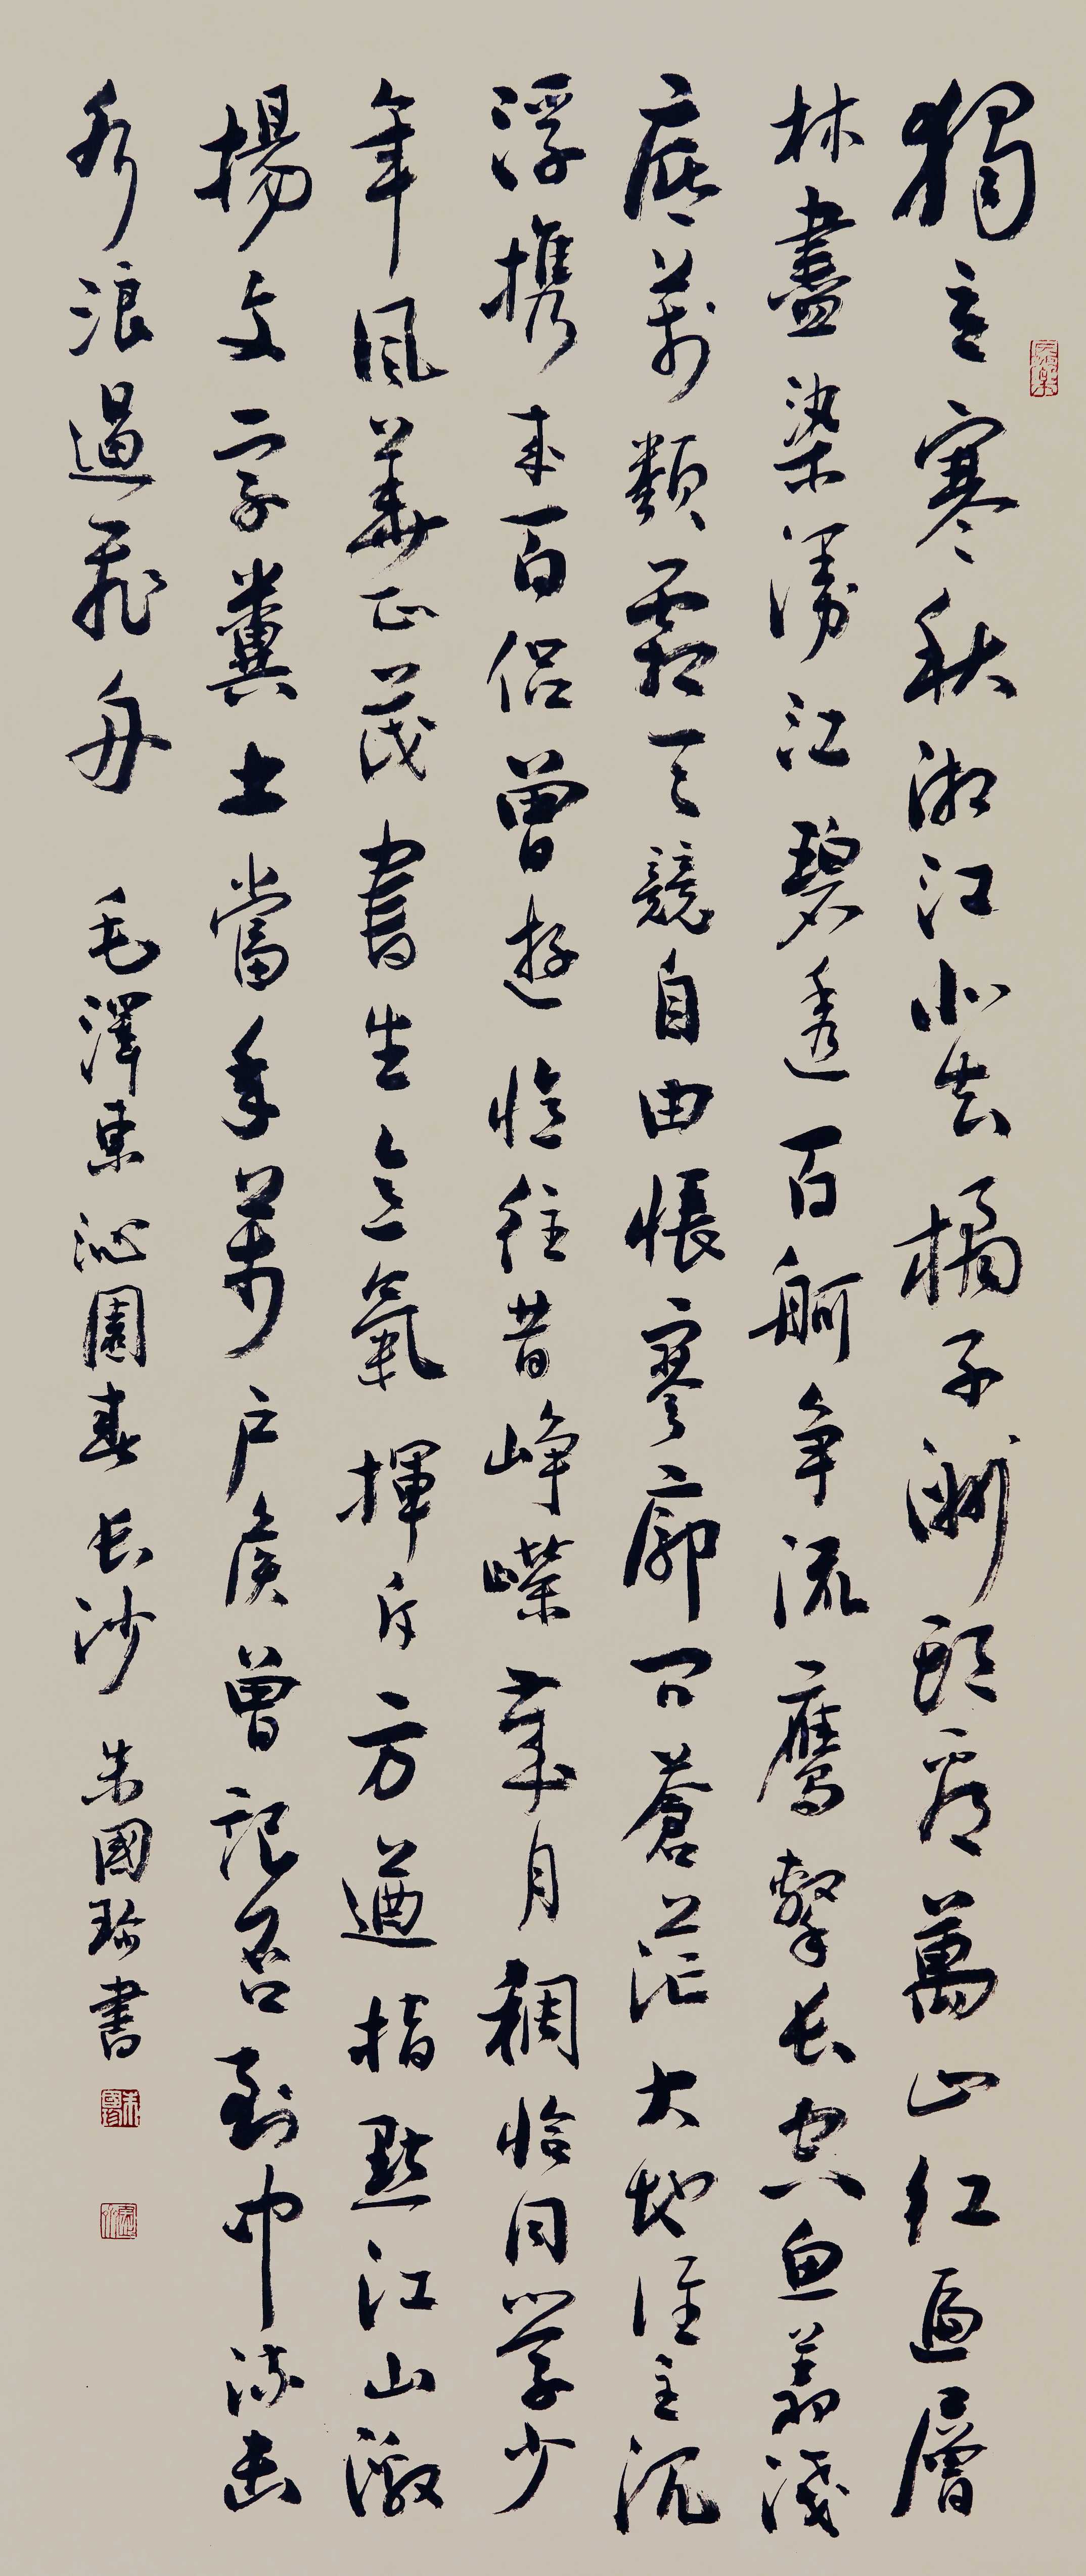 獨立寒秋湘江北去橘子洲頭看萬山紅遍層
林盡染漫江碧透百舸争流鷹擊長空魚翔淺
底萬類霜天競自由悵寥廓問蒼茫大地誰主沉
浮携來百侣曾遊憶往昔崢嶸歲月稠恰同學少
年風華正茂書生意氣揮斥方遒指點江山激
揚文字糞土當年萬户侯曾記否到中流擊
水浪遏飛舟 毛澤東沁園春長沙 朱國珍書
朱國珍